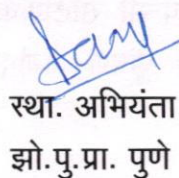 स्था. अभियंता
झो.पु.प्रा. पुणे